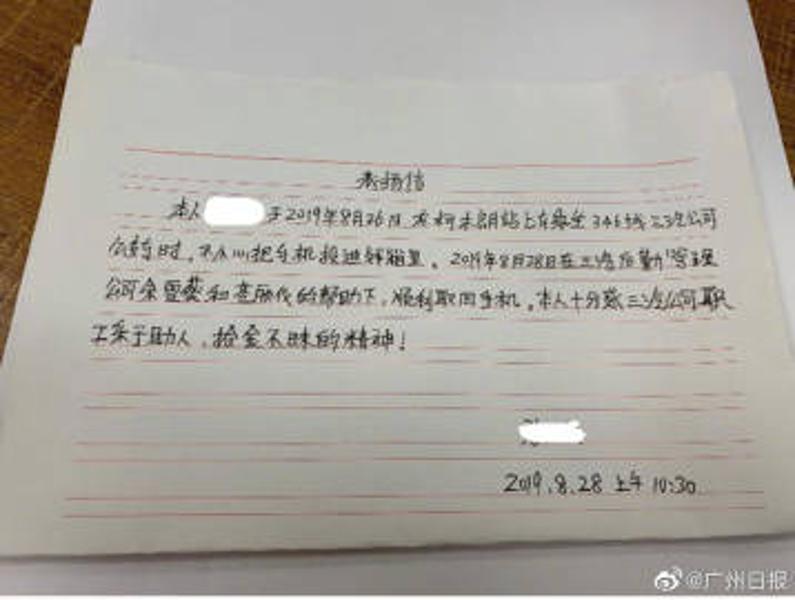 表扬信
本人 于2019年8月26日 在柯木朗站上车乘坐346线三汽公司
公交时，不小心把手机投进钱箱里。2019年8月28日在三汽后勤管理
公司余雪葵和 的帮助下，顺利取回手机。本人十分感 三汽公司职
工乐于助人，拾金不昧的精神！
2019.8.28 上午 10:30
@广州日报